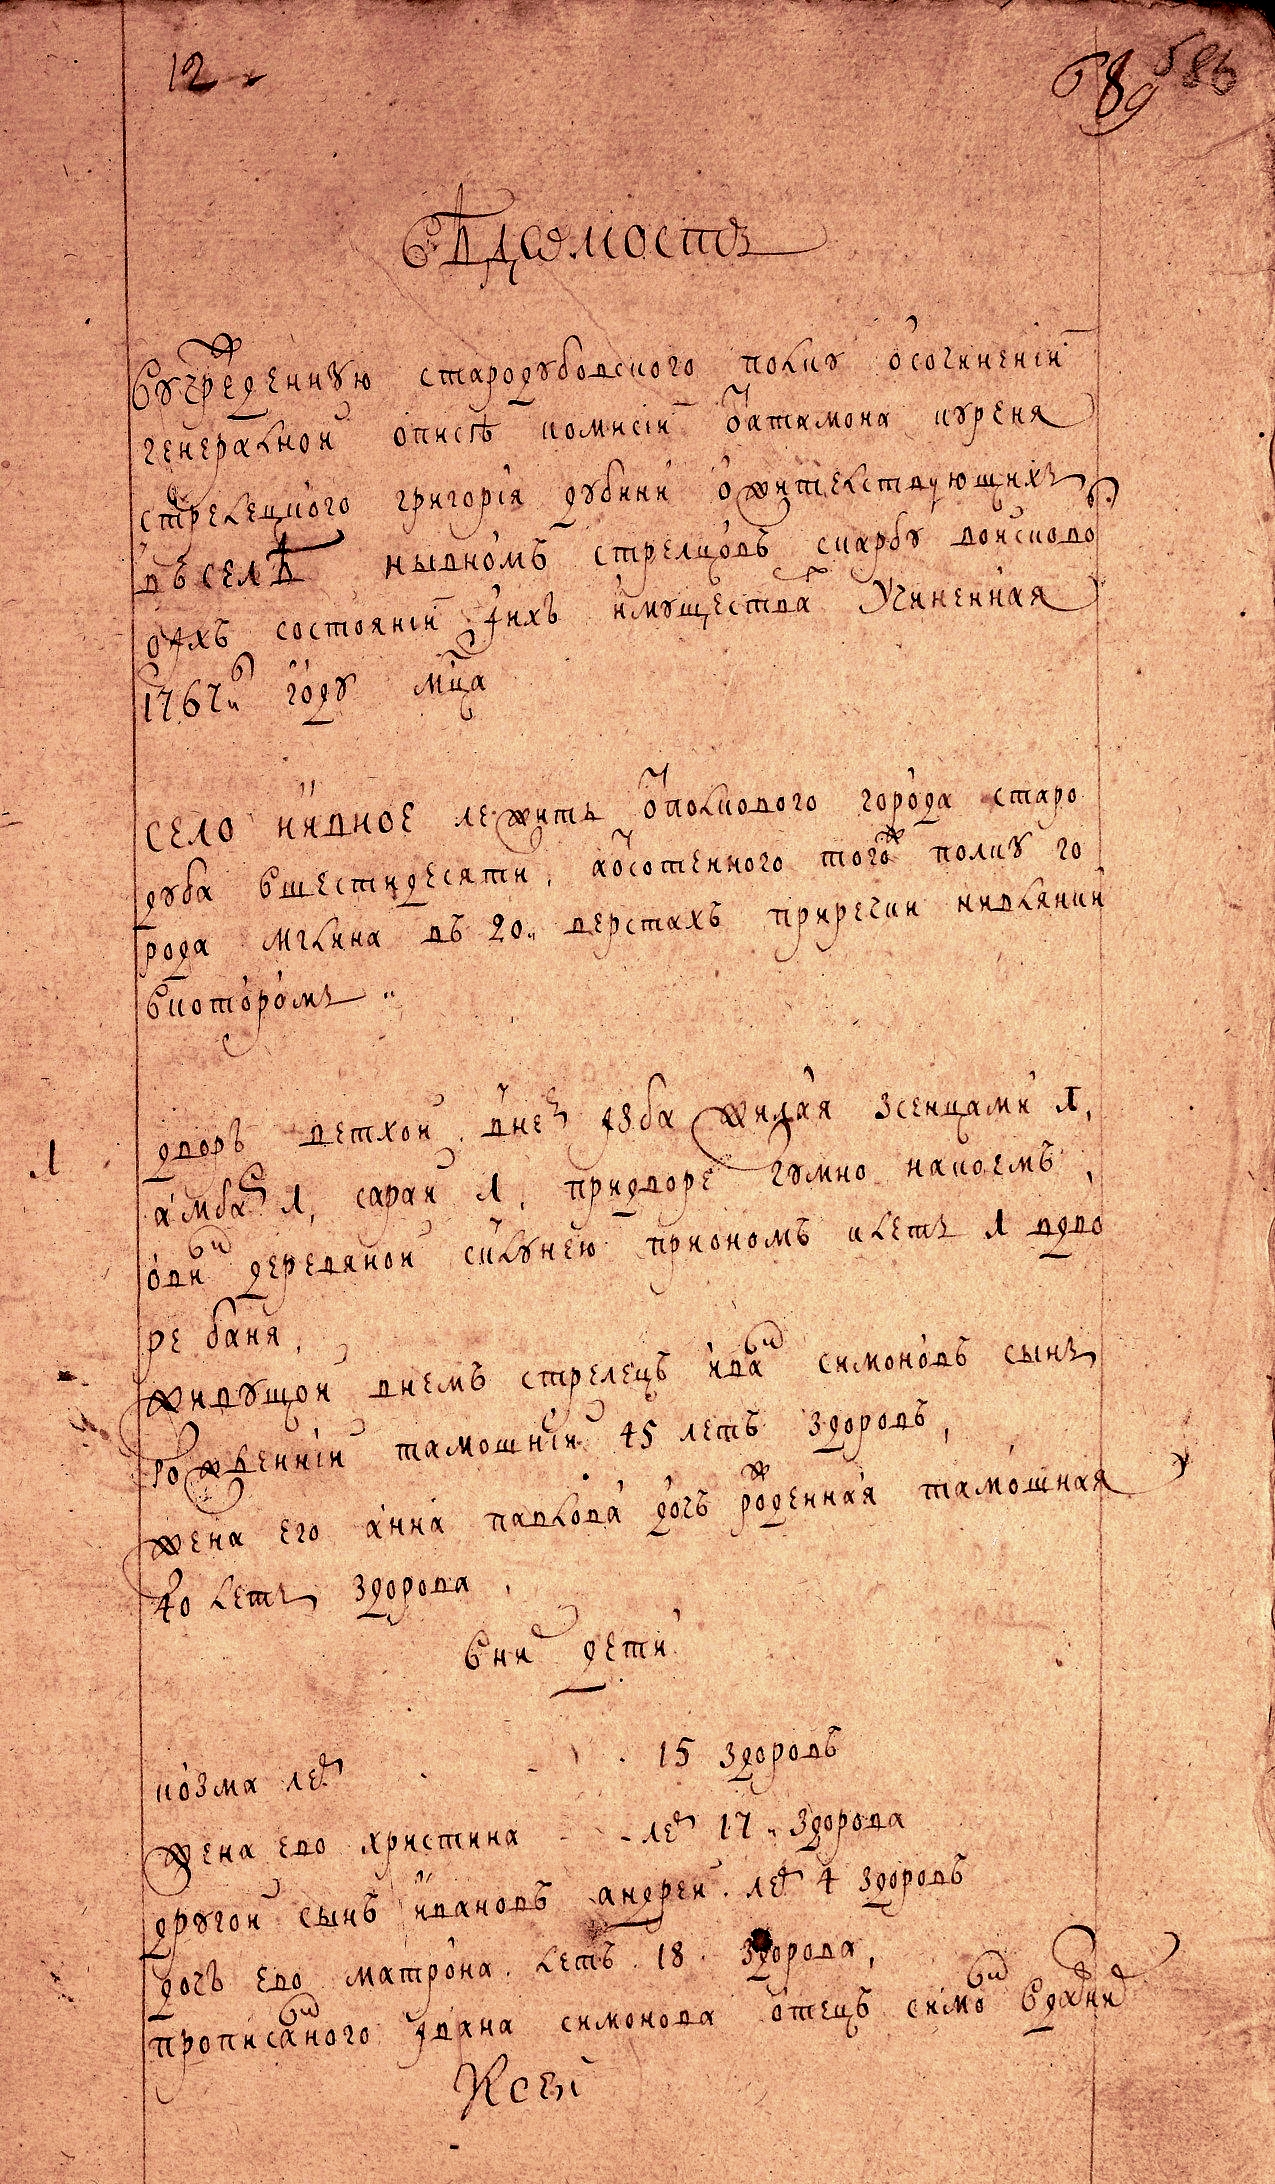 12
689 586
Вѣдомость
Вучрежденную стародубовского полку осочинении
генералной описѣ комисии отатамона куреня
стрелецкого григория дубини ожителствующихъ
въ селѣ нывномъ стрелцовъ скарбу войсково
о ихъ состоянии и ихъ имущества Учиненная
1767 году мца
Село нивное лежить отполкового города старо
дуба вшестидесяти, аотсотенного того ж полку го
рода мглина въ 20 верстахъ приречки нивлянки
вкоторомъ
1
дворъ ветхой, вней изба жилая зсенцами 1,
амбар 1, сарай 1, придворе гумно накоемъ,
овин деревяной склунею приономъ клеть 1 вдво
ре баня,
живущой внемъ стрелецъ иван симоновъ сынъ
рожденний тамошний 45 летъ здоровъ,
жена его анна павлова дочъ рожденная тамошная
40 летъ здорова,
вних дети
козма лет 15 здоровъ
жена ево христина лет 17 здорова
другой сынъ ивановъ андрей лет 4 здоровъ
дочъ ево матрона летъ 18 здорова,
прописанного ивана симонова отецъ симон вдавних
Ксей